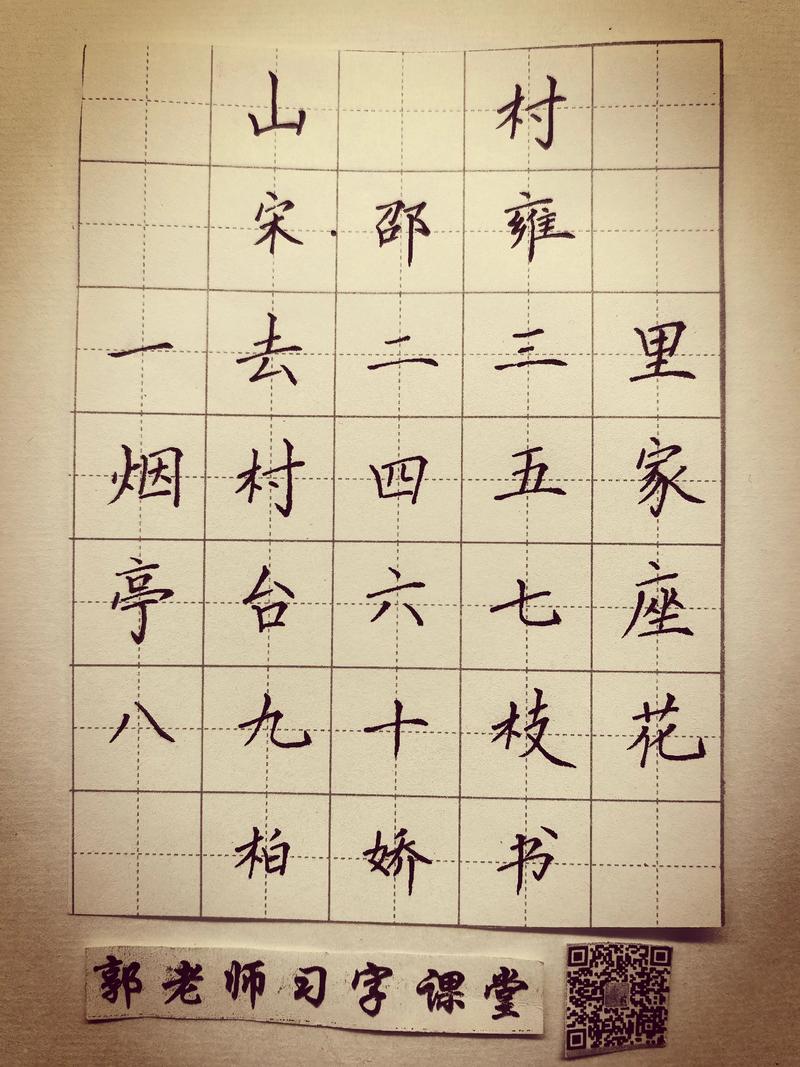 山村
宋·邵雍
一去二三里
烟村四五家
亭台六七座
八九十枝花
柏娇书
郭老师习字课堂